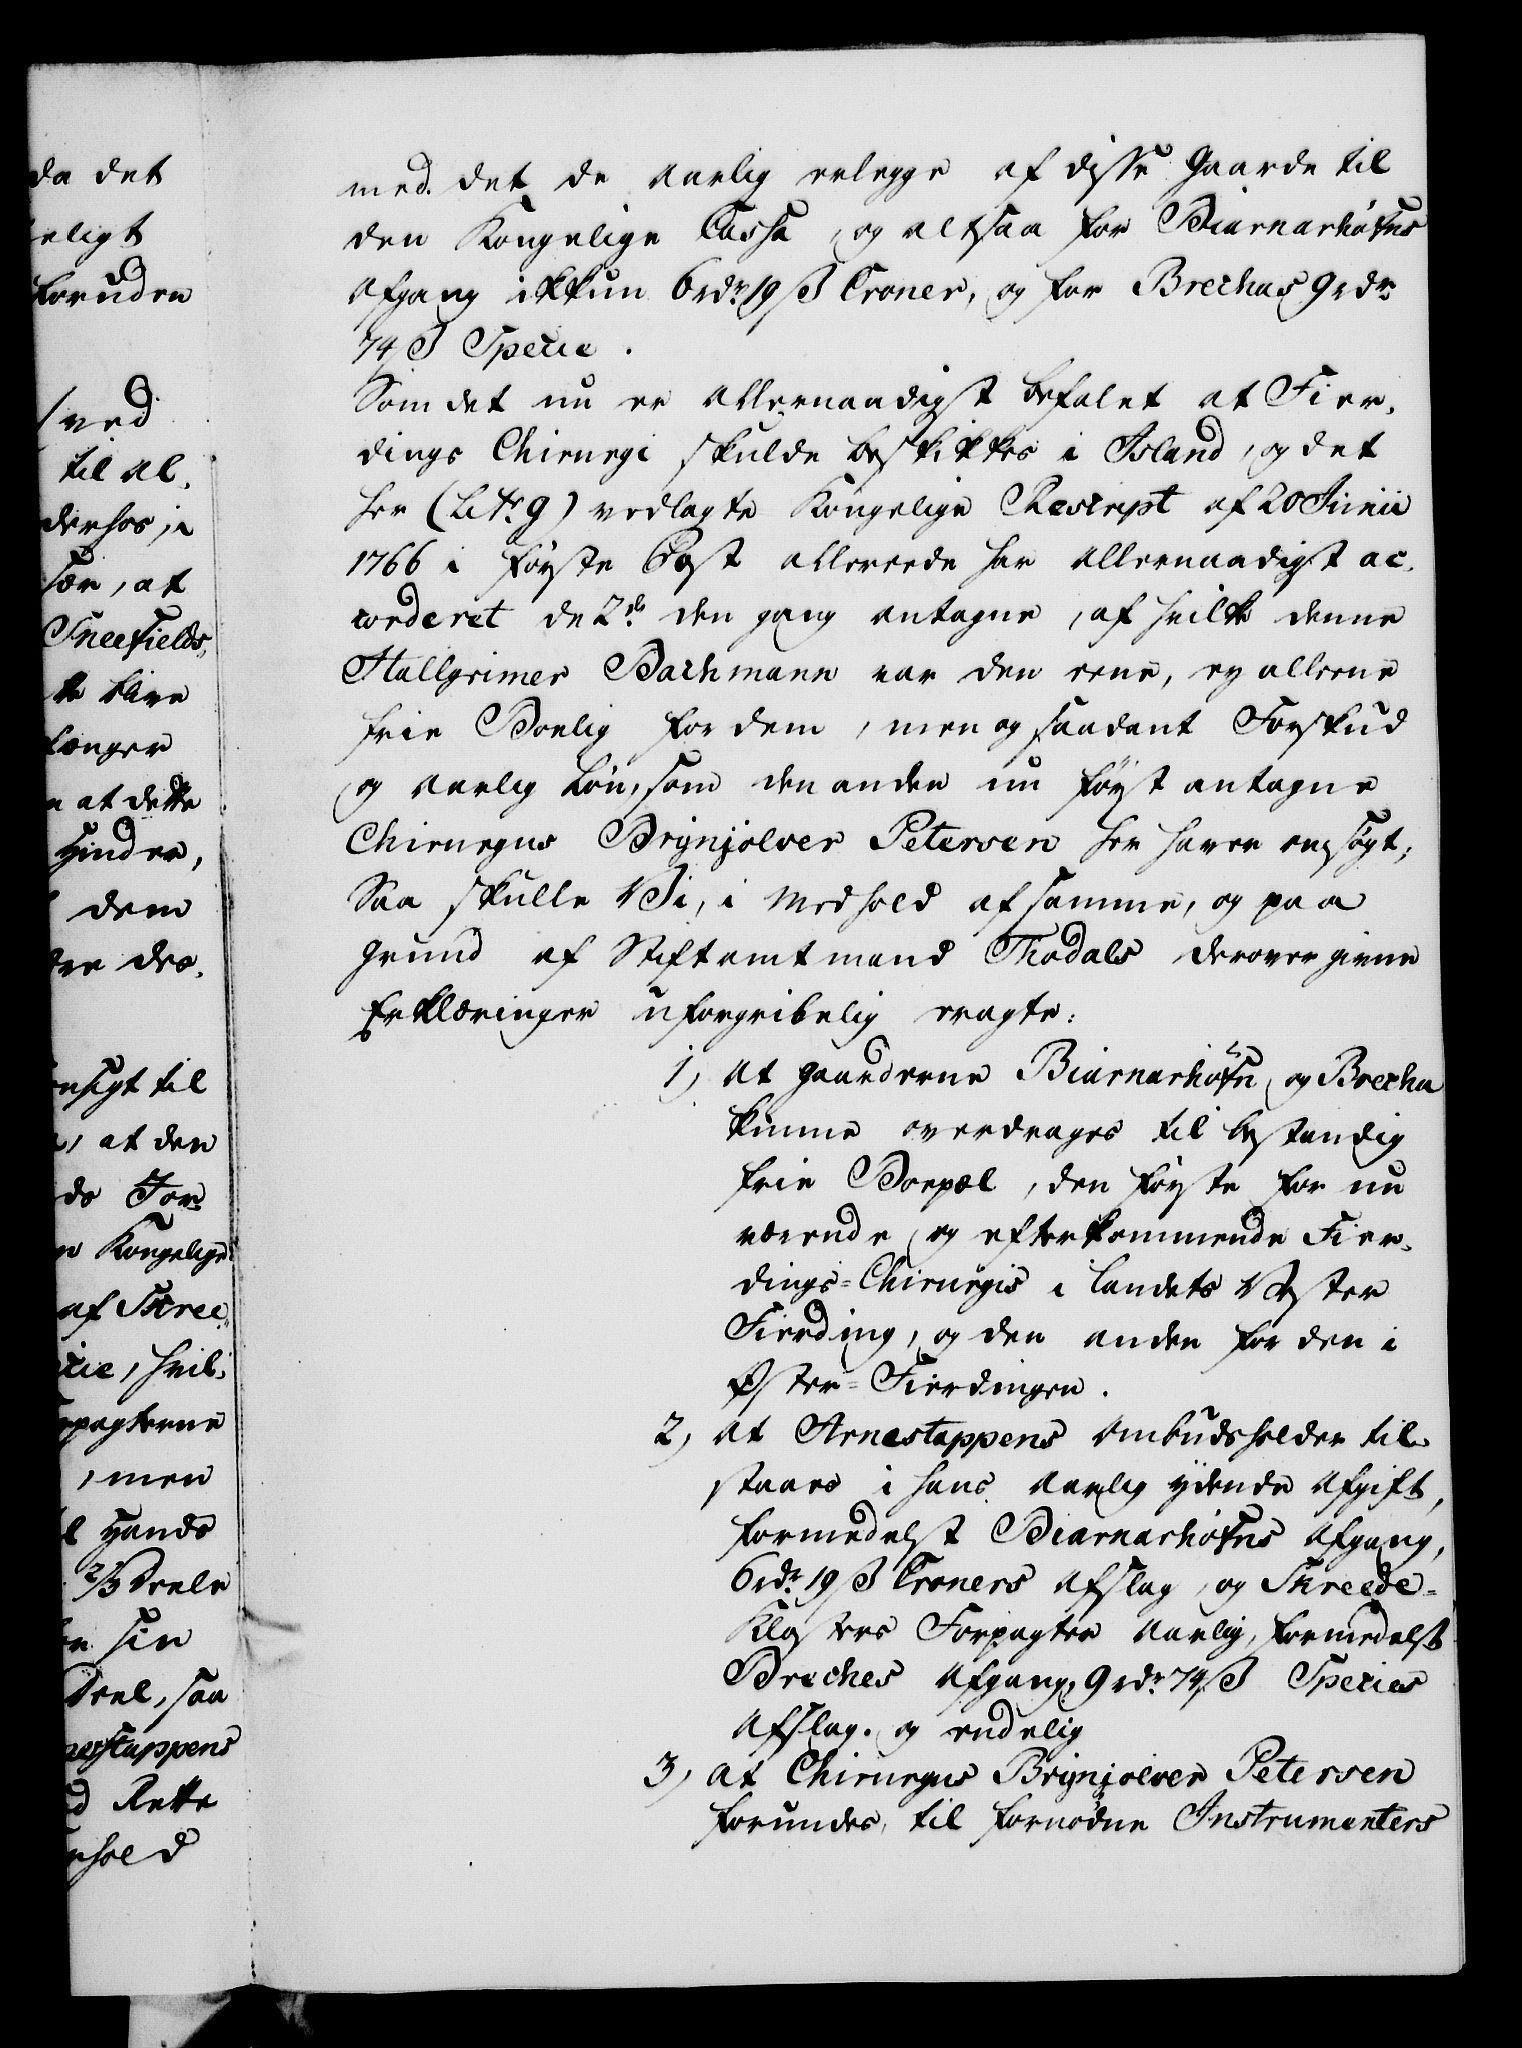 da det
eligt
foruden
ved
til al,
derhos, i
sær, at
Sneefields,
blive
længer
at dette
hinder,
dem
des,
til
at den
For
Kongelige
af Skree
cie, hvil,
pagterne
, men
hands
2/3 Deele
sin
Deel, saa
stappens
Rette
hold
med det de aarlig erlegge af disse Gaarde til
den Kongelige Cassa, og altsaa for Biarnarhöfns
Afgang ikkun 6 rdr. 19 ß Croner, og for Brechas 9 rdr.
74 ß Specie.
Som det nu er allernaadigst befalet at Fier,
dings Chirurgi skulde beskikkes i Island, og det
her (Litr. G) vedlagte Kongelige Rescript af 20 Junii
1766 i første Post allereede har allernaadigst ac,
corderet de 2de. den gang antagne, af hvilke denne
Hallgrimer Bachmann var den eene, ey alleene
frie Boelig for dem, men og saadant Forskud
og aarlig Løn, som den anden nu først antagne
Chirurgus Brynjolver Petersen her haver ansøgt;
Saa skulle Vi, i Medhold af samme, og paa
Grund af Stiftamtmand Thodals derover givne
Erklæringer uforgribelig eragte:
1, At Gaardene Biarnarhöfn, og Brecha
kunne overdrages til bestandig
frie Boepæl, den første for nu
værende og efterkommende Fier,
dings-Chirurgis i Landets Vester
Fierding, og den anden for den i
Øster-Fierdingen.
2, At Arnestappens Ombudsholder til,
staaes i hans aarlig ydende Afgift,
formedelst Biarnarhöfns Afgang,
6 rdr. 19 ß Croners Afslag, og Skreede-
Klosters Forpagter aarlig, formedelst
Breches Afgang, 9 rdr. 74 ß Species
Afslag. og endelig
3, at Chirurgus Brynjolver Petersen
forundes, til fornødne Instrumenters